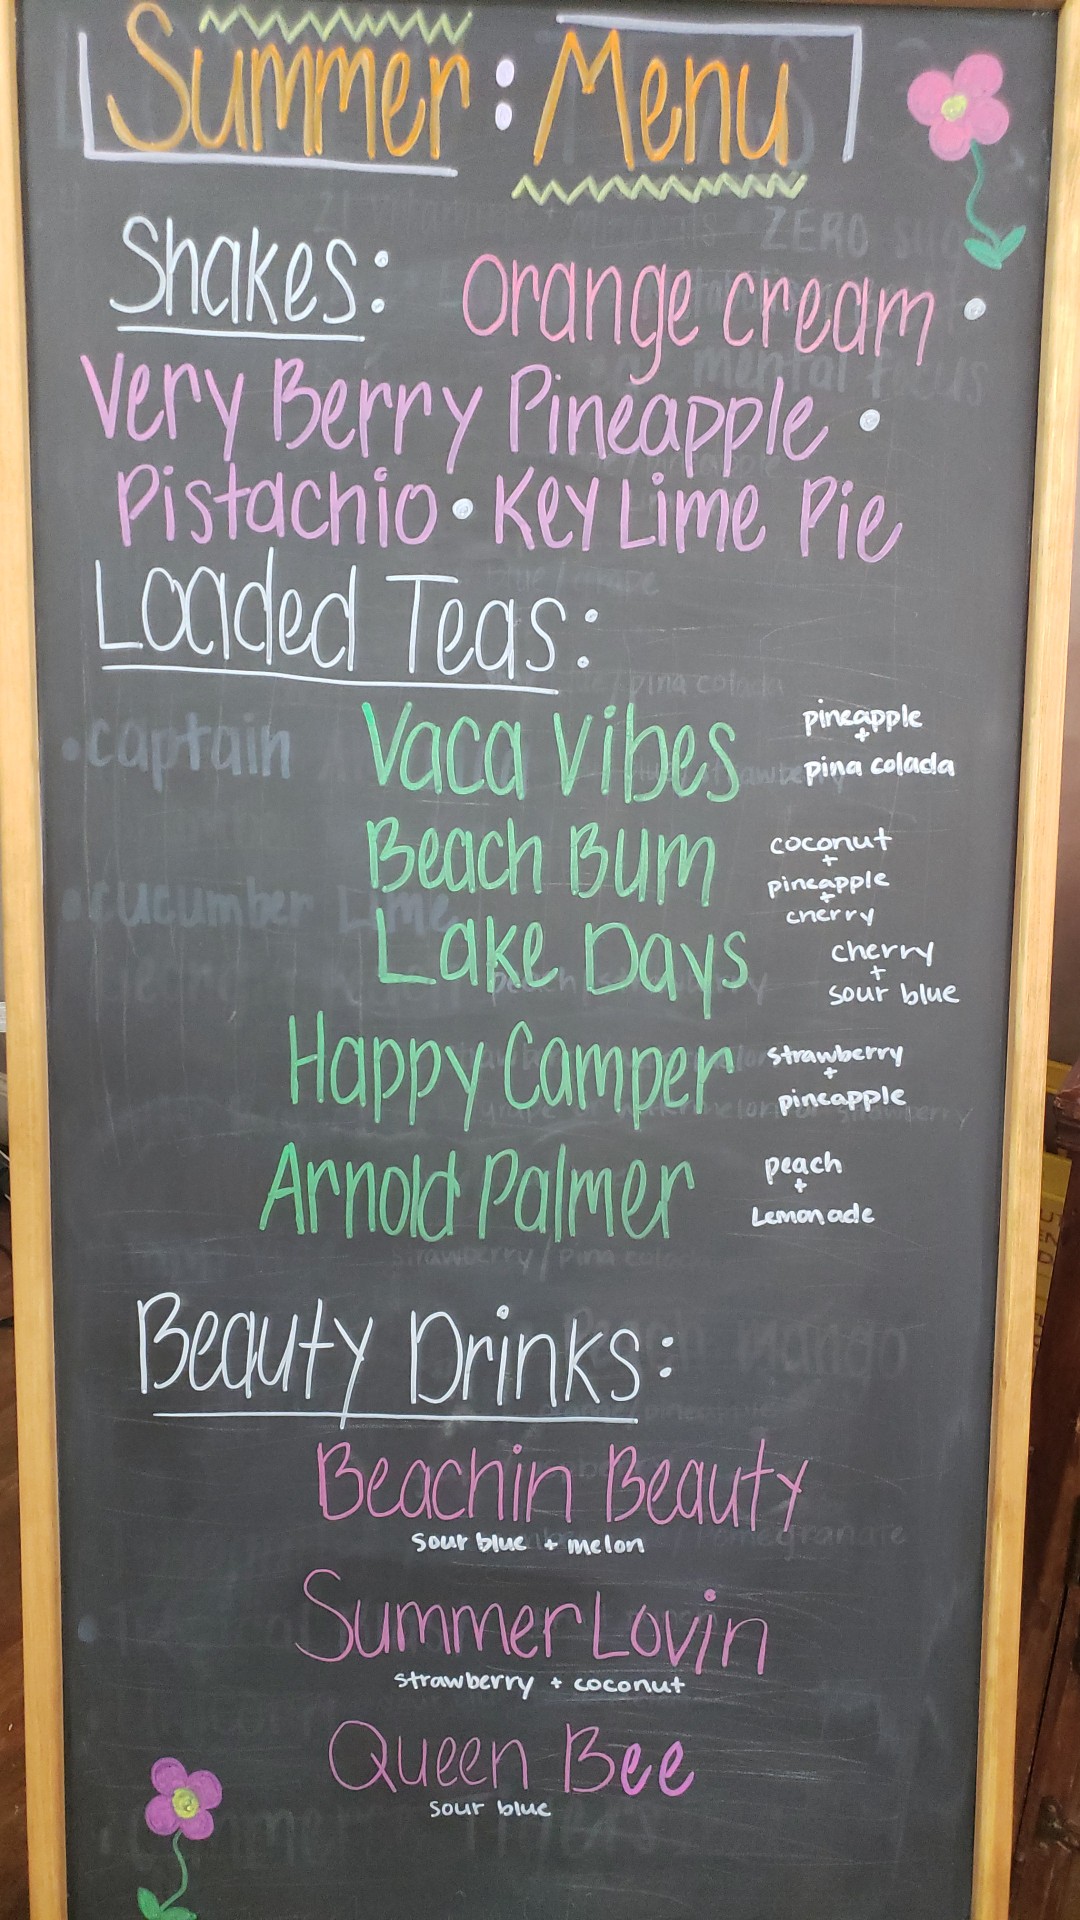 Summer: Menu
Shakes: Orange cream •
Very Berry Pineapple •
Pistachio • Key Lime Pie
Loaded Teas:
Vaca Vibes
pineapple
+
pina colada
Beach Bum
coconut
+
pineapple
+
cherry
Lake Days
cherry
+
sour blue
Happy Camper
strawberry
+
pineapple
Arnold Palmer
peach
+
Lemonade
Beauty Drinks:
Beachin Beauty
sour blue + melon
Summer Lovin
strawberry + coconut
Queen Bee
sour blue
ZERO
mental focus
• captain
pina colada
• cucumber Lime
strawberry / pina colada